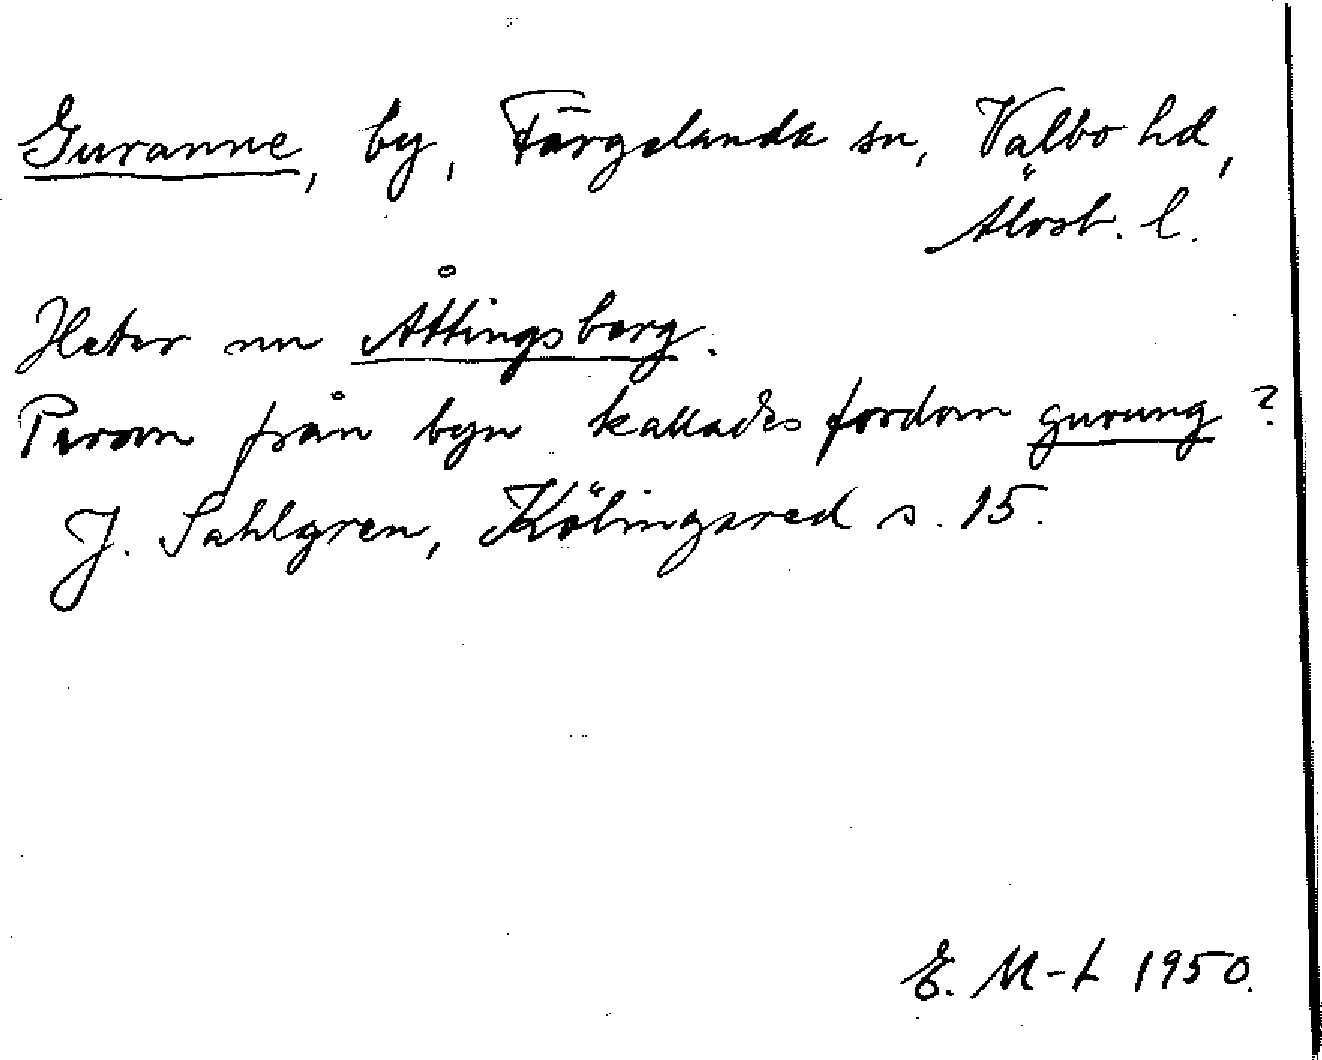 Guranne, by, Färgelanda sn, Valbo hd,
Älvsb. l.
Heter nu Åttingsberg.
Person från byn kallades fordom gurung?
J. Sahlgren, Kölingared s. 15.
E. M-t 1950.